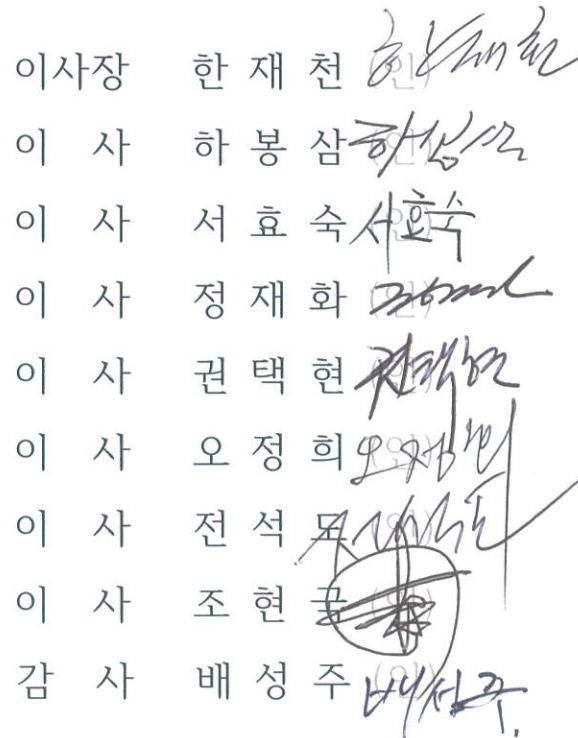 이사장 한 재 천 (인) 한재천
이 사 하 봉 삼 (인)
이 사 서 효 숙 (인) 서효숙
이 사 정 재 화 (인)
이 사 권 택 현 (인) 권택현
이 사 오 정 희 (인) 오정희
이 사 전 석 도 (인)
이 사 조 현 국 (인)
감 사 배 성 주 (인) 배성주.